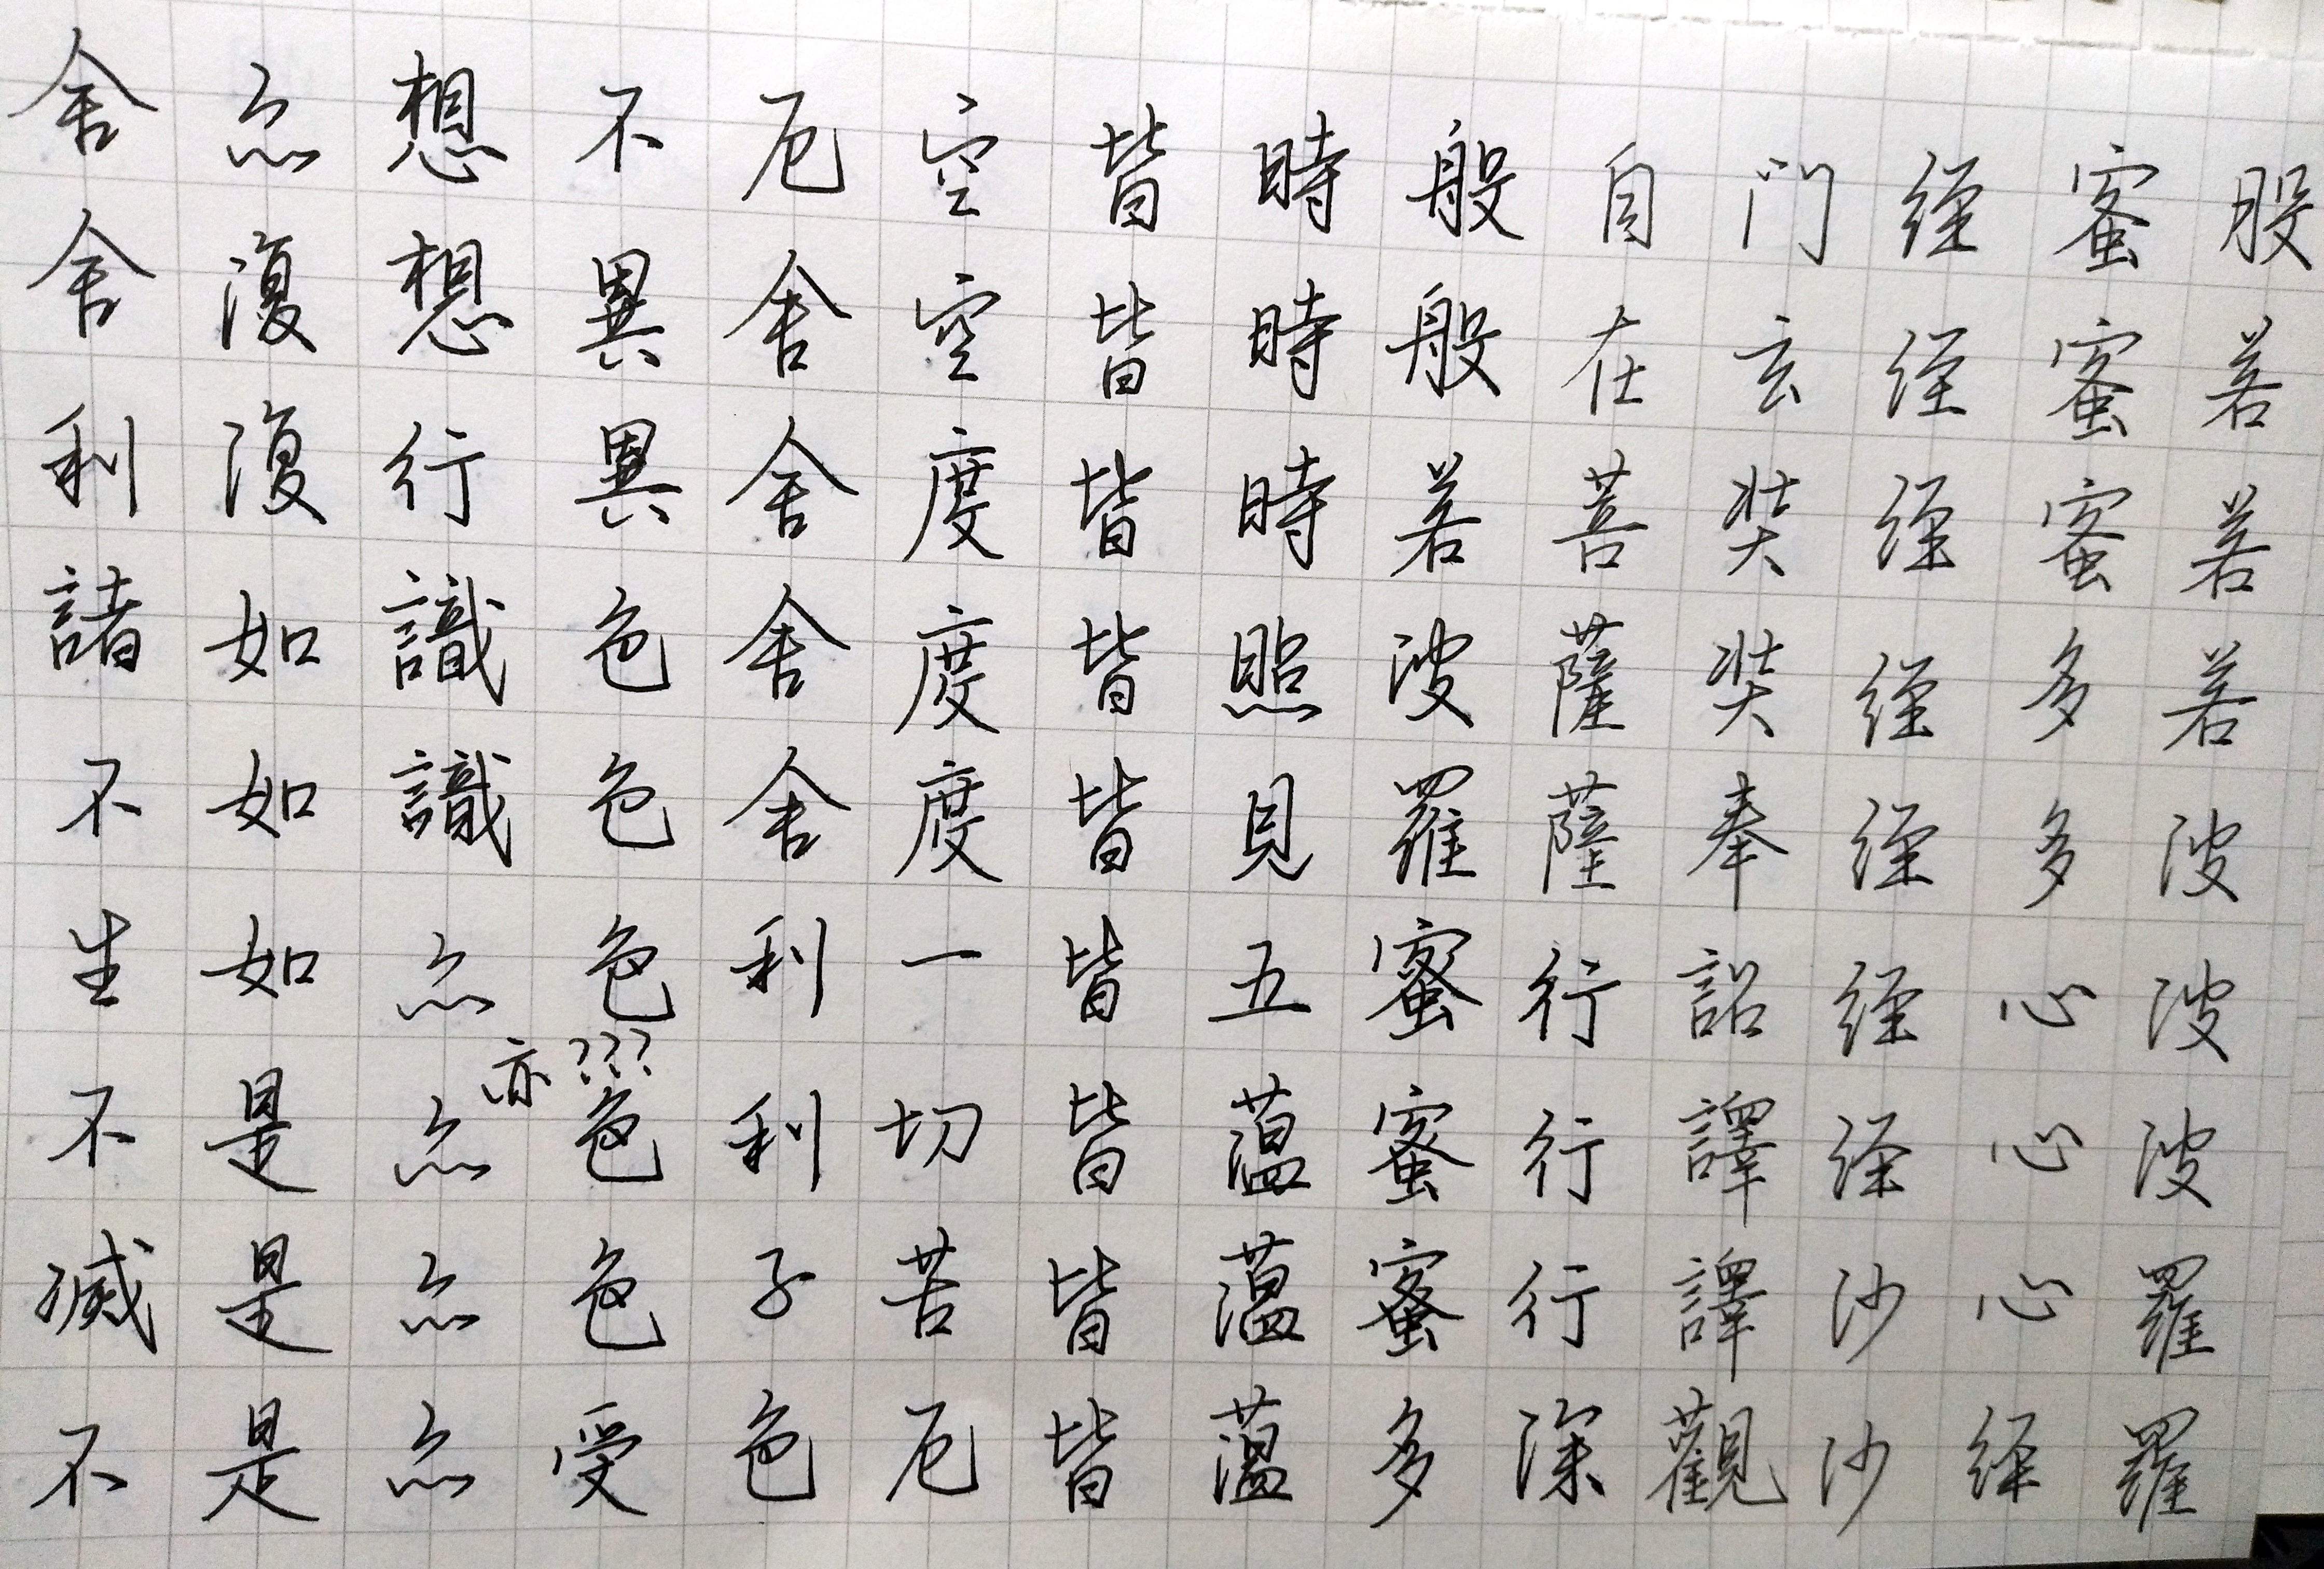 般若若若波波波羅羅
蜜蜜蜜多多心心心經
經經經經經經經沙沙
門玄奘奘奉詔譯譯觀
自在菩薩薩行行行深
般般若波羅蜜蜜蜜多
時時時照見五蘊蘊蘊
皆皆皆皆皆皆皆皆皆
空空度度度一切苦厄
厄舍舍舍舍利利子色
不異異色色色色色受
亦???
想想行識識亦亦亦亦
亦復復如如如是是是
舍舍利諸不生不滅不